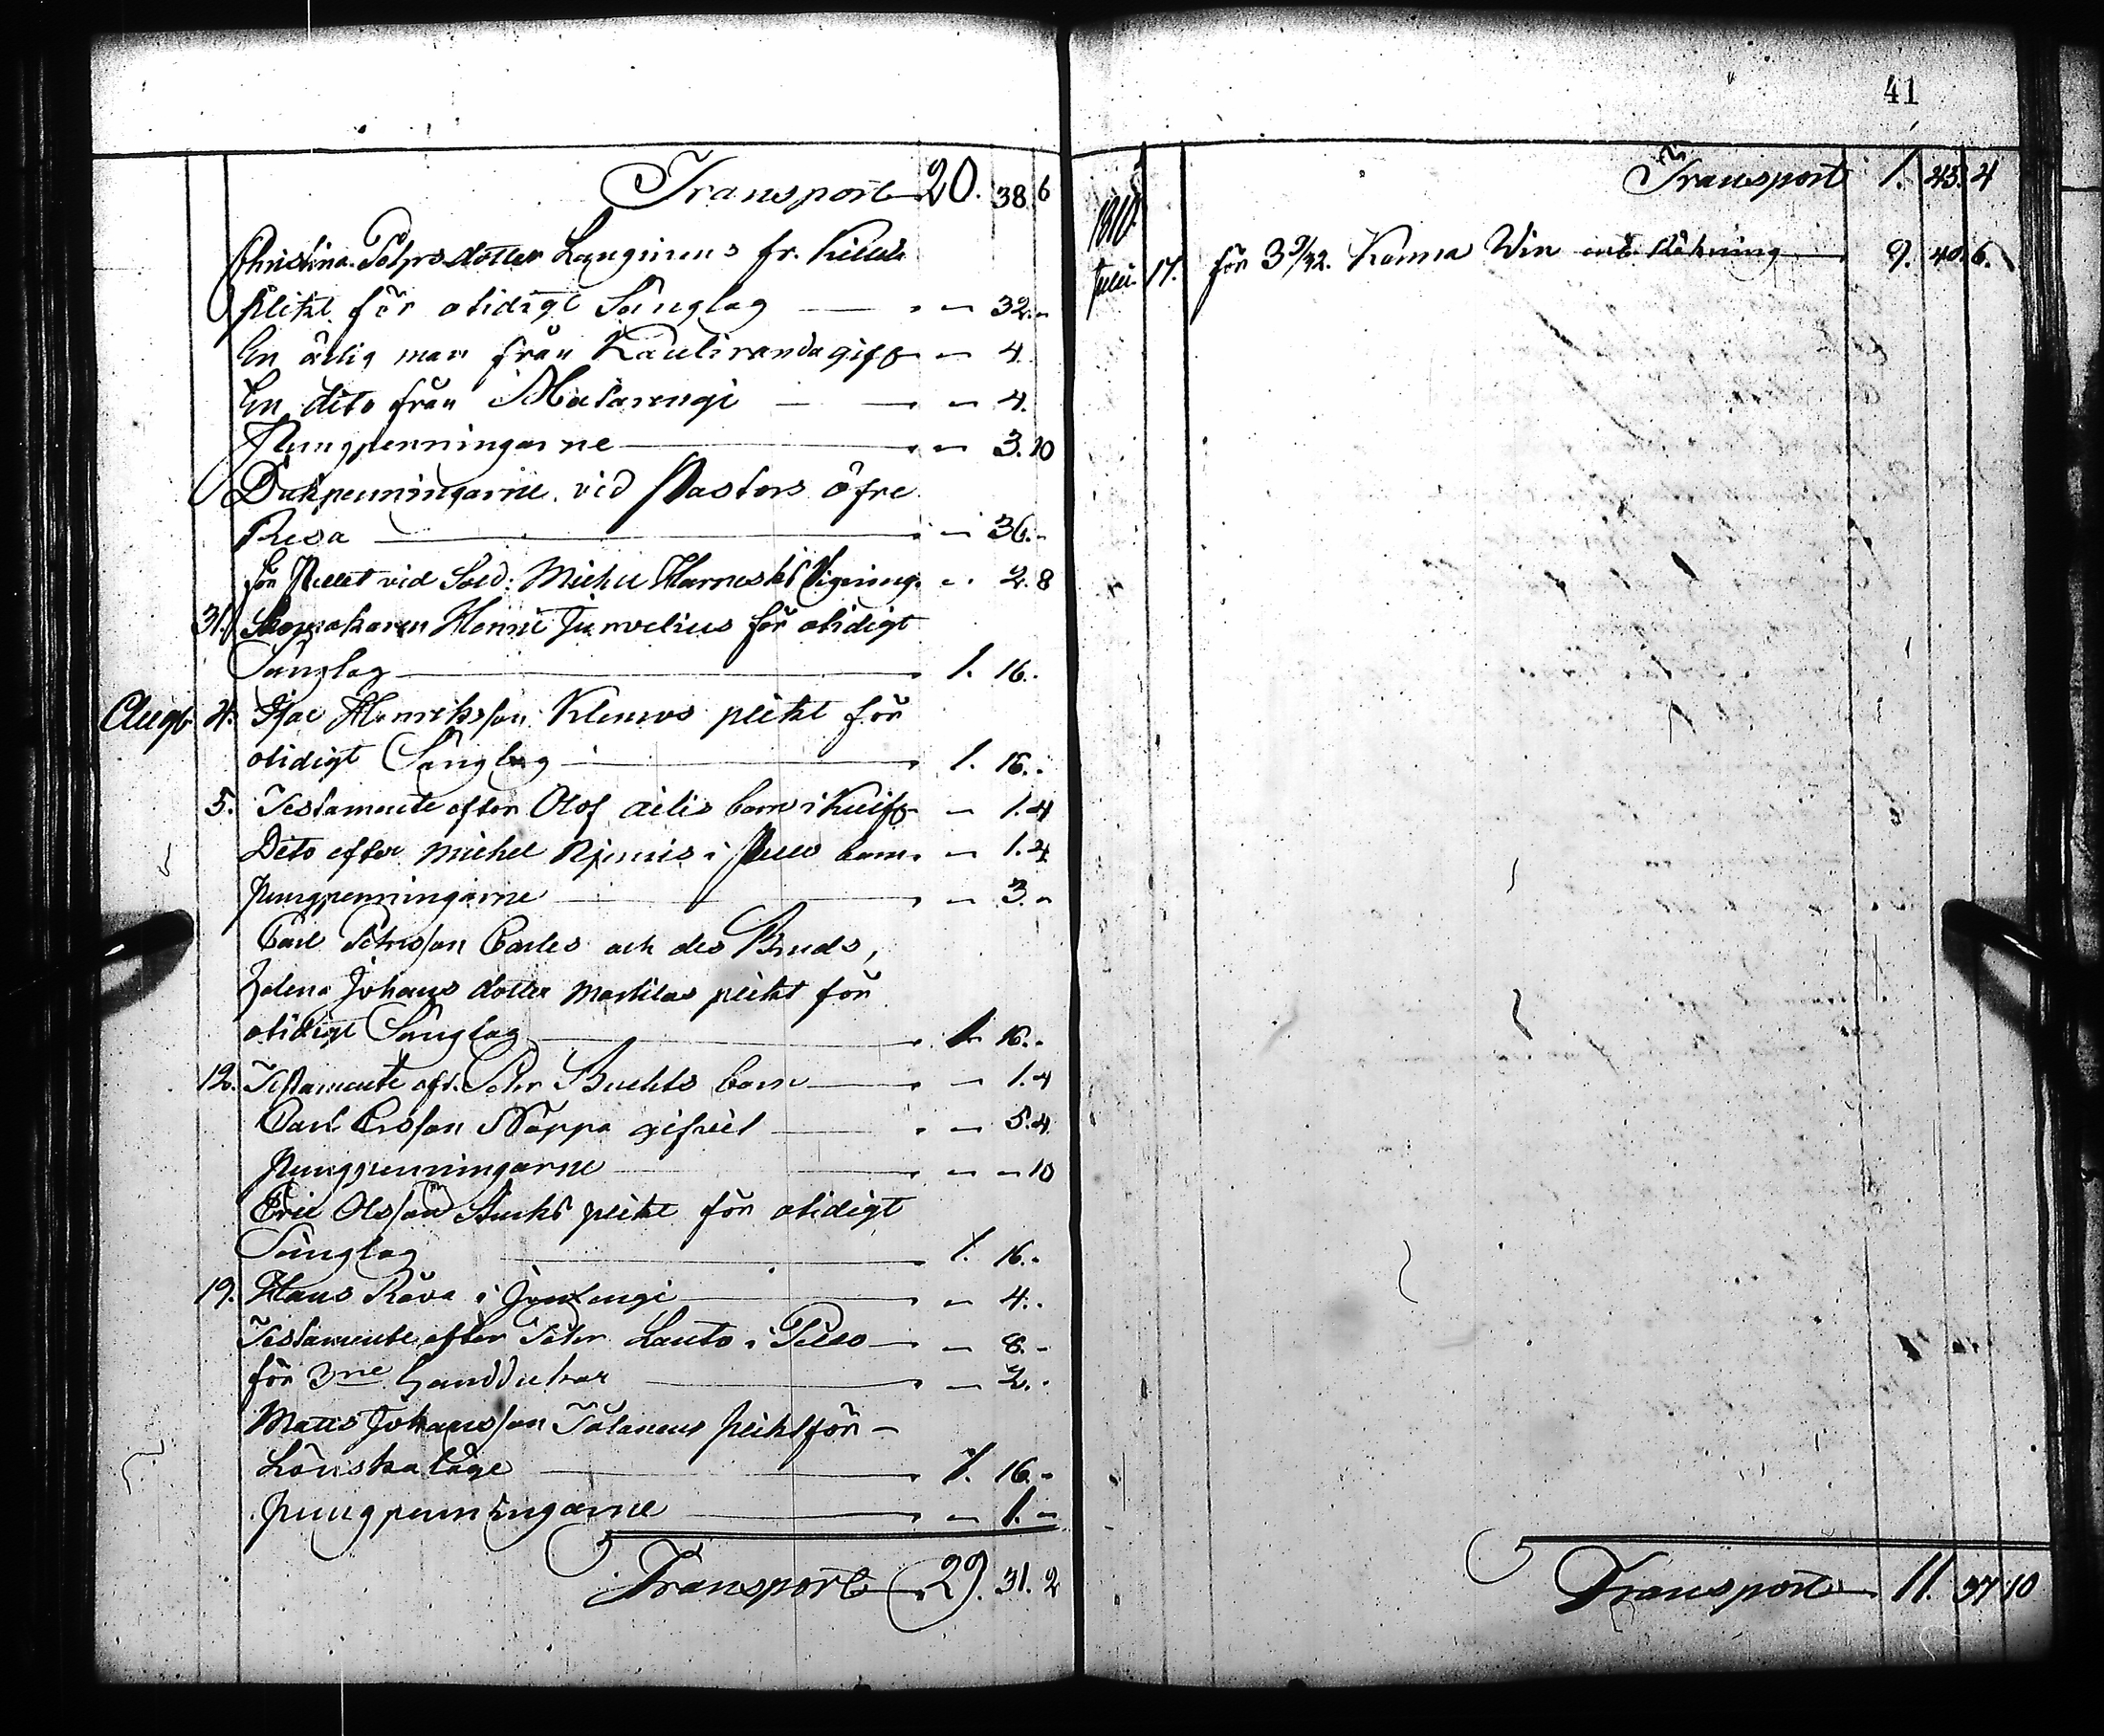 Transport 20. 38. 6
Christina Petersdotter Langinens fr.
plikt för otidigt Sänglag — " — 32. -
En ärlig man från Kaulirandagift — 4.
En dito från Matarengi — — 4.
Pungpenningarne — — 3. 10
Dukpenningarne vid Pastors öfre
Resa — — 36. -
för Pellet vid Sold: Michel Harnesks Vigning. — 2. 8
31. Skomakaren Henric Junvelius för otidigt
Sänglag — 1. 16. -
Augti 4. Isac Henricksson Klemos plikt för
otidigt Sänglag — 1. 16. -
5. Testamente efter Olof barn i — 1. 4
Dito efter Michel i Pello barn — 1. 4
pungpenningarne — — 3. -
Carl Petersson Carles och des Bruds,
Helena Johans dotter Martilas plikt för
otidigt Sänglag — 1. 16. -
12. Testamente eft. Petr Buchts barn — — 1. 4
Carl Ersson Nappa gifvit — — 5. 4
Pungpenningarne — — — 10
Eric Olsson plikt för otidigt
Sänglag — 1. 16. -
19. Hans Räva i Juoxengi — — 4. -
Testamente efter Petr Lauto i Pello — — 8. -
för 3ne handdukar — — 2. -
Matts Johansson Talanens plikt för -
Lönskaläge — 1. 16. -
pungpenningarne — — 1. -
Transport 29. 31. 2
41
Transport 1. 45. 4
1810.
Julii 17. för 3 9/32. Kanna Win enl. Räkning — 9. 40. 6.
Transport — 11. 37. 10